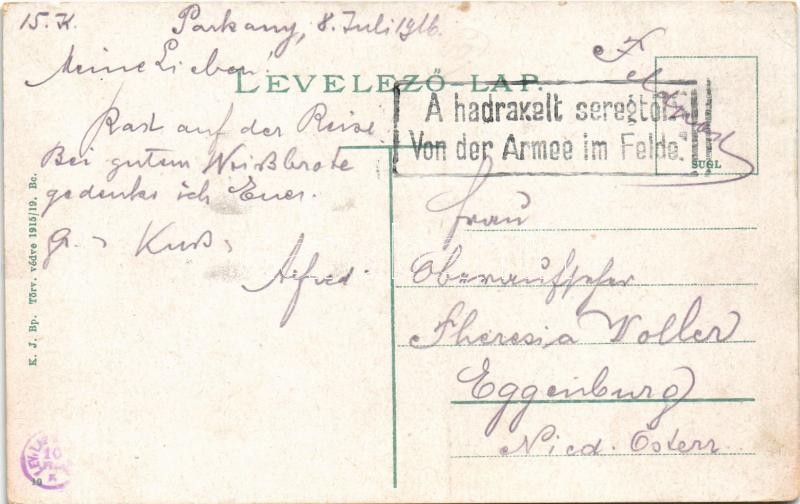 15. K. Parkany, 8. Juli 1916.
Meine Lieben!
LEVELEZŐ-LAP.
Feldpost
A hadrakelt seregtől.
Von der Armee im Felde.
SUGL
Rast auf der Reise
Bei gutem Weißbrote
gedenke ich Euer.
Gr. u. Kuß,
Alfred
Frau
Oberaufseher
Theresia Woller
Eggenburg
Nied. Österr
K. J. Bp. Törv. védve 1915/19. Bc.
10
19